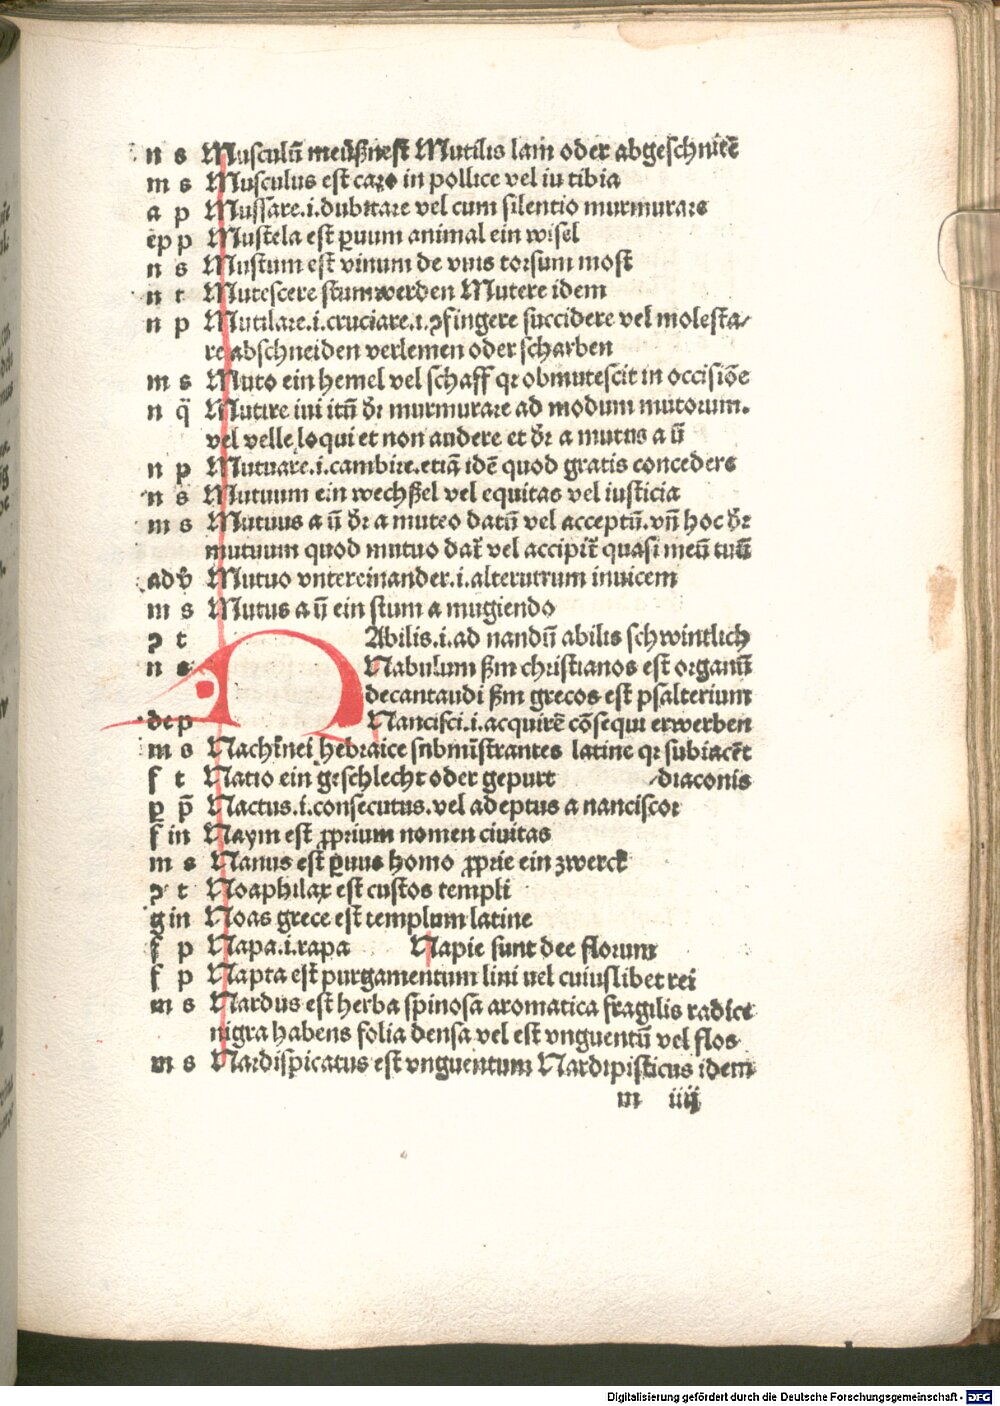 n s Musculū meüßnest Mutilis lam oder abgeschnitē
m s Musculus est caro in pollice vel iu tibia
a p Mussare.i.dubitare vel cum silentio murmurare
ep p Mustela est ꝑuum animal ein wisel
n s Mustum est vinum de vuis torsum most
n t Mutescere stumwerden Mutere idem
n p Mutilare.i.cruciare.i.ↄfingere succidere vel molesta⸗
re abschneiden verlemen oder scharben
m s Muto ein hemel vel schaff qꝛ obmutescit in occisiōe
n q̄ Mutire iui itū dꝛ murmurare ad modum mutorum.
vel velle loqui et non audere et dꝛ a mutus a ū
n p Mutuare.i.cambire.etiā idē quod gratis concedere
n s Mutuum ein wechßel vel equitas vel iusticia
m s Mutuus a ū dꝛ a muteo datū vel acceptū.vn̄ hoc dꝛ
mutuum quod mutuo dat̄ vel accipit̄ quasi meū tuū
adv̄ Mutuo vntereinander.i.alterutrum inuicem
m s Mutus a ū ein stum a mugiendo
ↄ t NAbilis.i.ad nandū abilis schwintlich
n s Nabulum ßm christianos est organū
decantaudi ßm grecos est psalterium
de p Nancisci.i.acquirē cōsequi erwerben
m s Nachīnei hebraice snbmīstrantes latine qꝛ subiacēt
f t Natio ein geschlecht oder gepurt ⸗diaconis
p p̄ Nactus.i.consecutus.vel adeptus a nanciscor
f in Naym est ꝓprium nomen ciuitas
m s Nanus est ꝑuus homo ꝓprie ein zwerck
ↄ t Noaphilax est custos templi
g in Noas grece est templum latine
f p Napa.i.rapa Napie sunt dee florum
f p Napta est purgamentum lini vel cuiuslibet rei
m s Nardus est herba spinosa aromatica fragilis radice
nigra habens folia densa vel est vnguentū vel flos
m s Nardispicatus est vnguentum Nardipisticus idem
m iiij
Digitalisierung gefördert durch die Deutsche Forschungsgemeinschaft - DFG